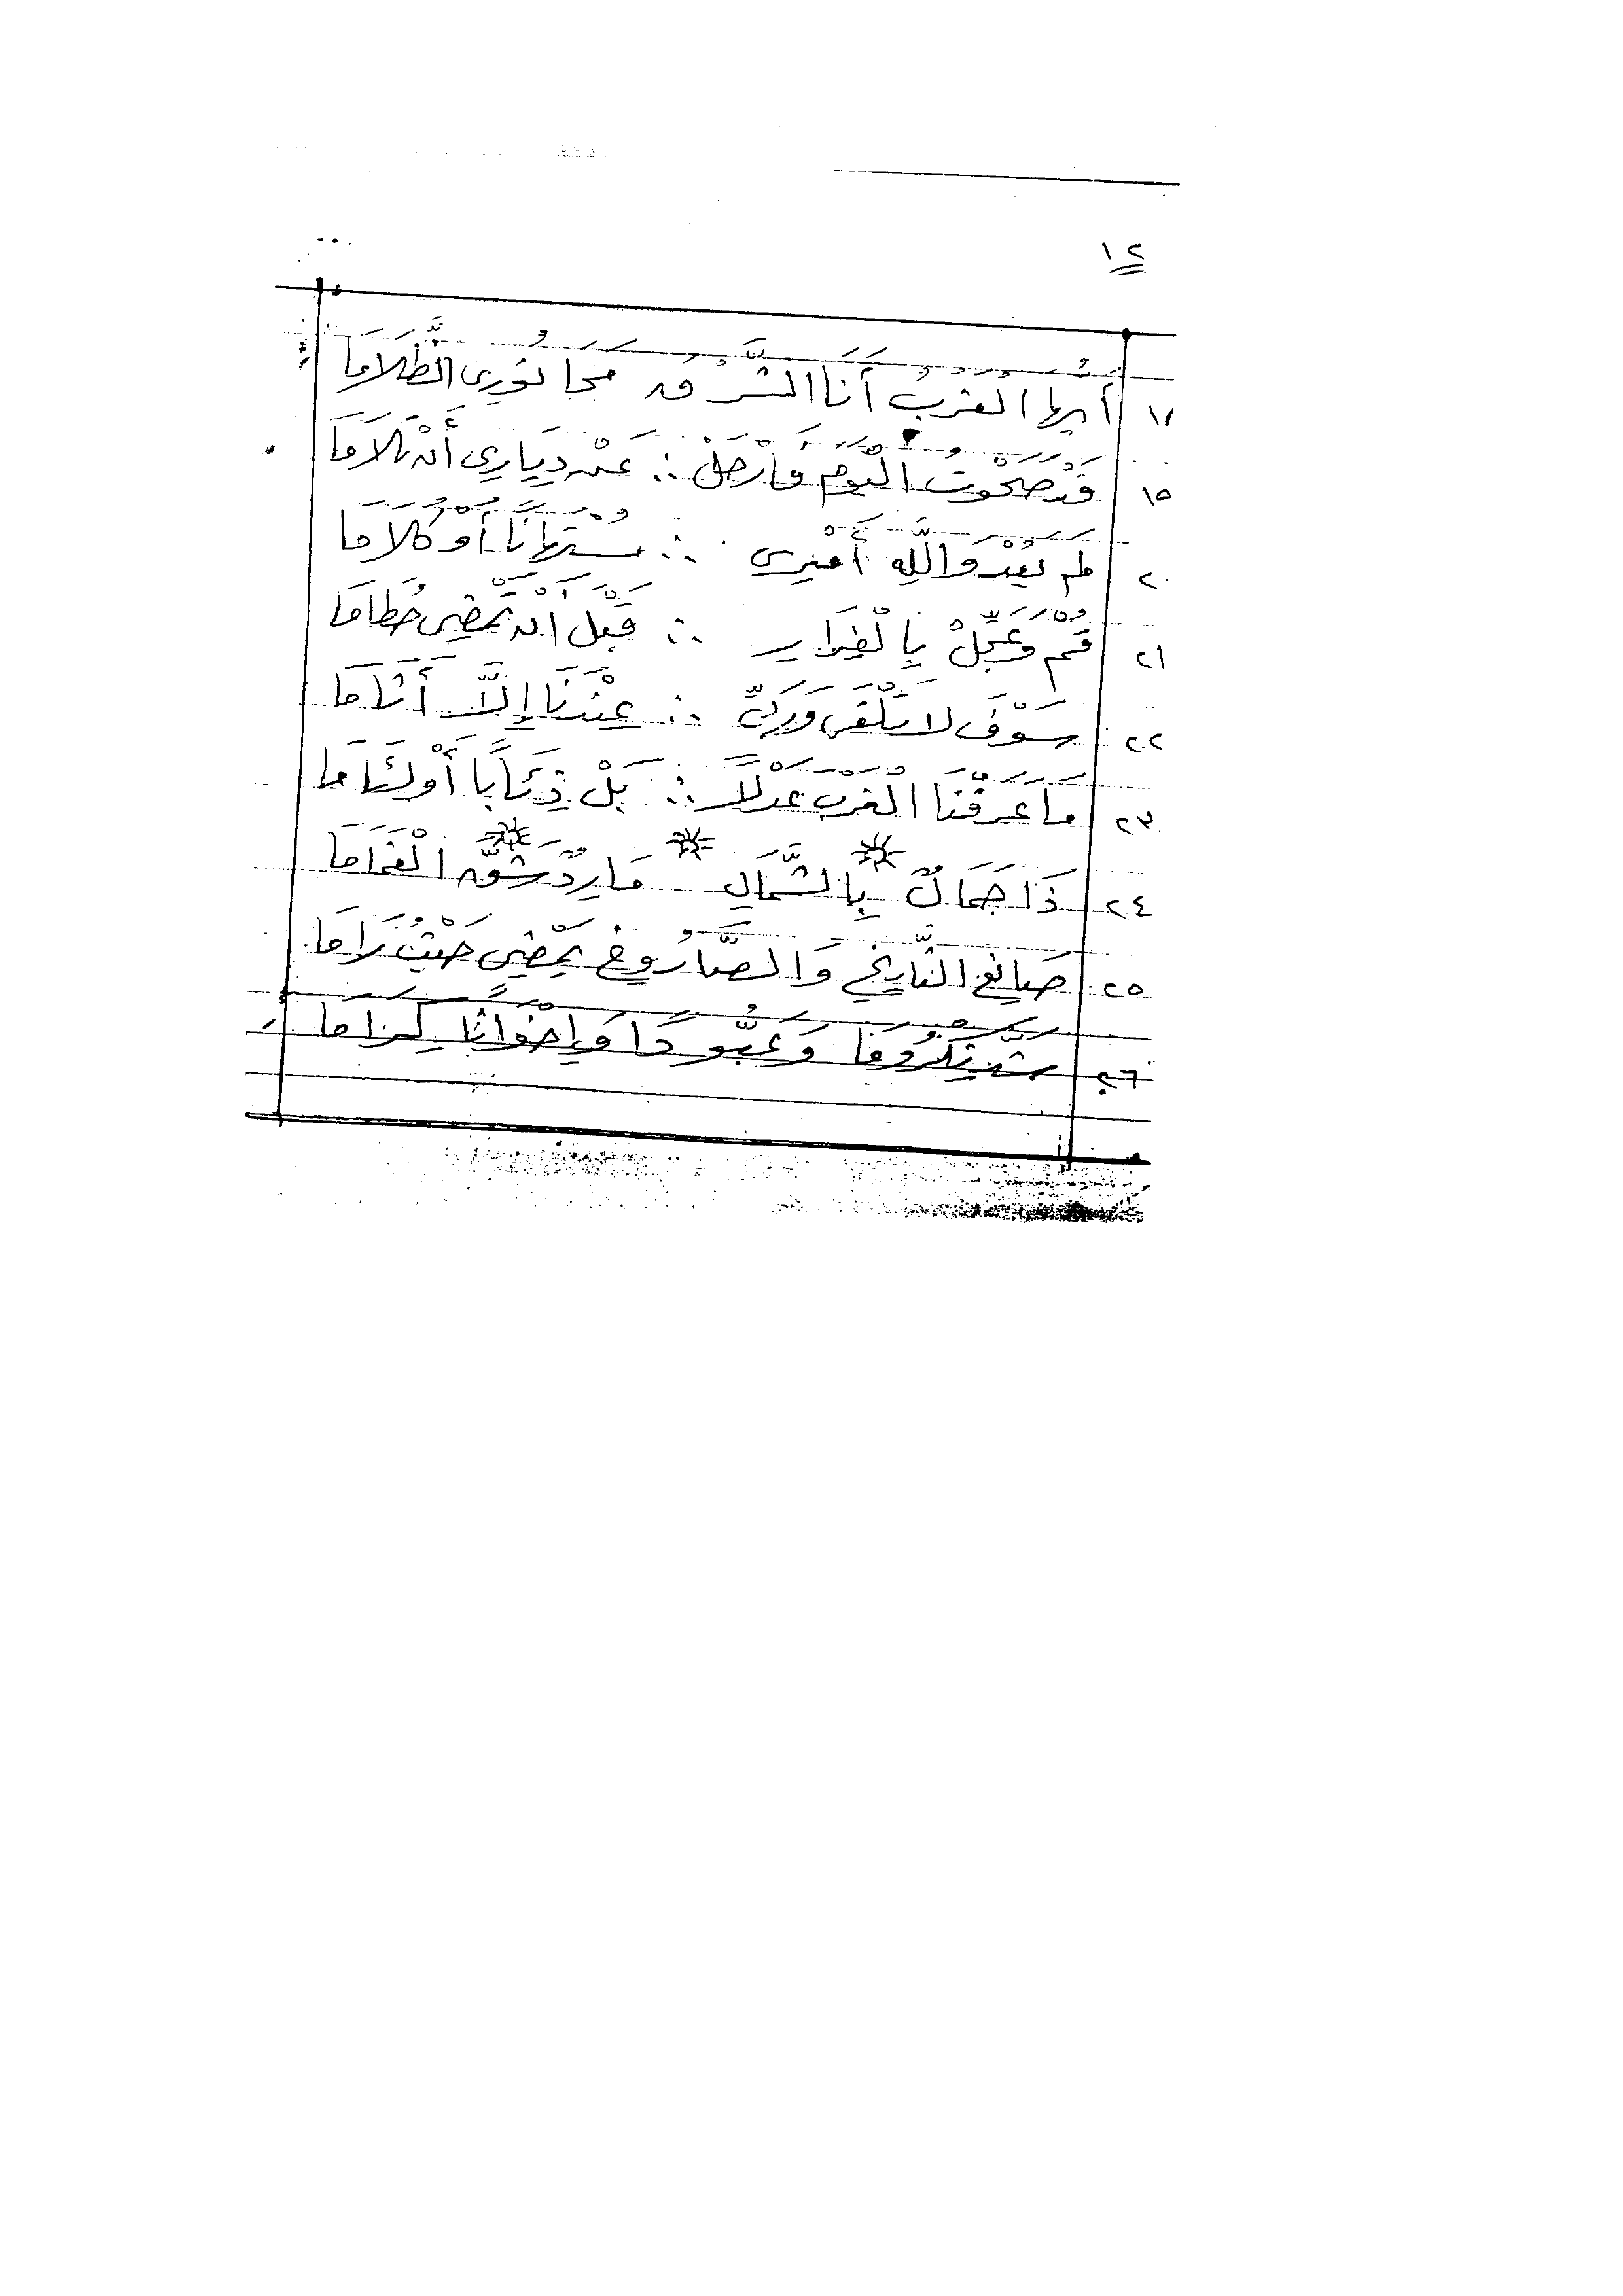 ١٢
١٨ أَيُّهَا الْغَرْبُ أَنَا الشَّرْقُ مَحَا نُورِي الظَّلَامَا
١٩ قَدْ صَحَوْتُ الْيَوْمَ فَارْحَلْ ∴ عَنْ دِيَارِي أَنْ تُلَامَا
٢٠ لَمْ يَعُدْ وَاللَّهِ أَمْرِي ∴ مُسْتَهَانًا أَوْ كَلَامَا
٢١ قُمْ وَعَجِّلْ بِالْفِرَارِ ∴ قَبْلَ أَنْ تَمْضِي حُطَامَا
٢٢ سَوْفَ لَا تَلْقَى وَرَبِّي ∴ عِنْدَنَا إِلَّا أَثَامَا
٢٣ مَا عَرَفْنَا الْغَرْبَ عَدْلًا ∴ بَلْ ذِئَابًا أَوْ لِئَامَا
٢٤ ذَا جَمَالٌ بِالشَّمَالِ مَارِدٌ شَقَّ الْغَمَامَا
٢٥ صَانِعُ التَّارِيخِ وَالصَّارُوخُ يَمْضِي حَيْثُ رَامَا
٢٦ وَعَبُّودًا وَإِخْوَانًا كِرَامَا